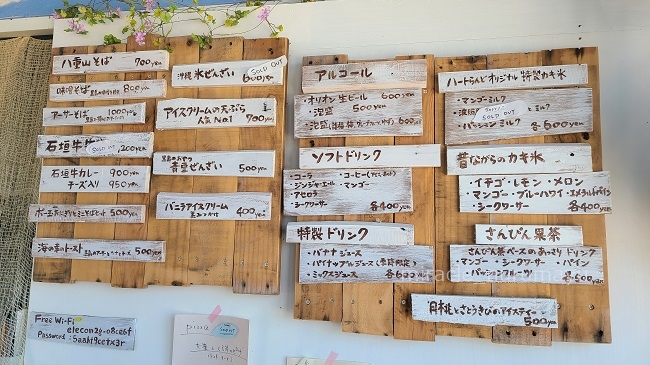 八重山そば 700yen
味噌そば 800yen
アーサそば 1000yen
石垣牛 SOLD OUT ,200yen
石垣牛カレー 900yen
チーズ入り 950yen
500yen
海の幸のトースト 500yen
沖縄 氷ぜんざい SOLD OUT 600yen
アイスクリームの天ぷら
人気No1 700yen
黒島のおやつ
青豆ぜんざい 500yen
バニラアイスクリーム 400yen
アルコール
・オリオン生ビール 600yen
・泡盛 500yen
・泡盛 600yen
ソフトドリンク
・コーラ ・コーヒー
・ジンジャエール ・マンゴー
・アセロラ
・シークワーサー 各400yen
特製ドリンク
・バナナジュース
・パイナップルジュース(季節限定)
・ミックスジュース 各600yen
ハートらんどオリジナル 特製カキ氷
・マンゴーミルク
SOLD OUT ミルク
・パッションミルク 各600yen
昔ながらのカキ氷
・イチゴ・レモン・メロン
・マンゴー・ブルーハワイ・エメラルドパイン
・シークワーサー 各400yen
さんぴん果茶
さんぴん茶ベースのあっさりドリンク
・マンゴー・シークワーサー・パイン
・パッションフルーツ 各500yen
月桃とさとうきびのアイスティー
500yen
Free Wi-Fi
elecon2g-08ce6f
Password: 5aah9cctx3r
PIZZA
SOLD OUT